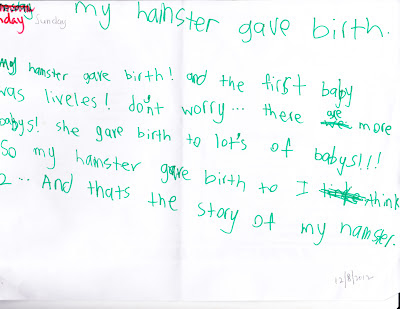 nday Sunday my hamster gave birth.
my hamster gave birth! and the first baby
was liveles! don't worry... there are more
babys! she gave birth to lot's of babys!!!
So my hamster gave birth to I think
2... And thats the story of my hamster.
12/8/2012